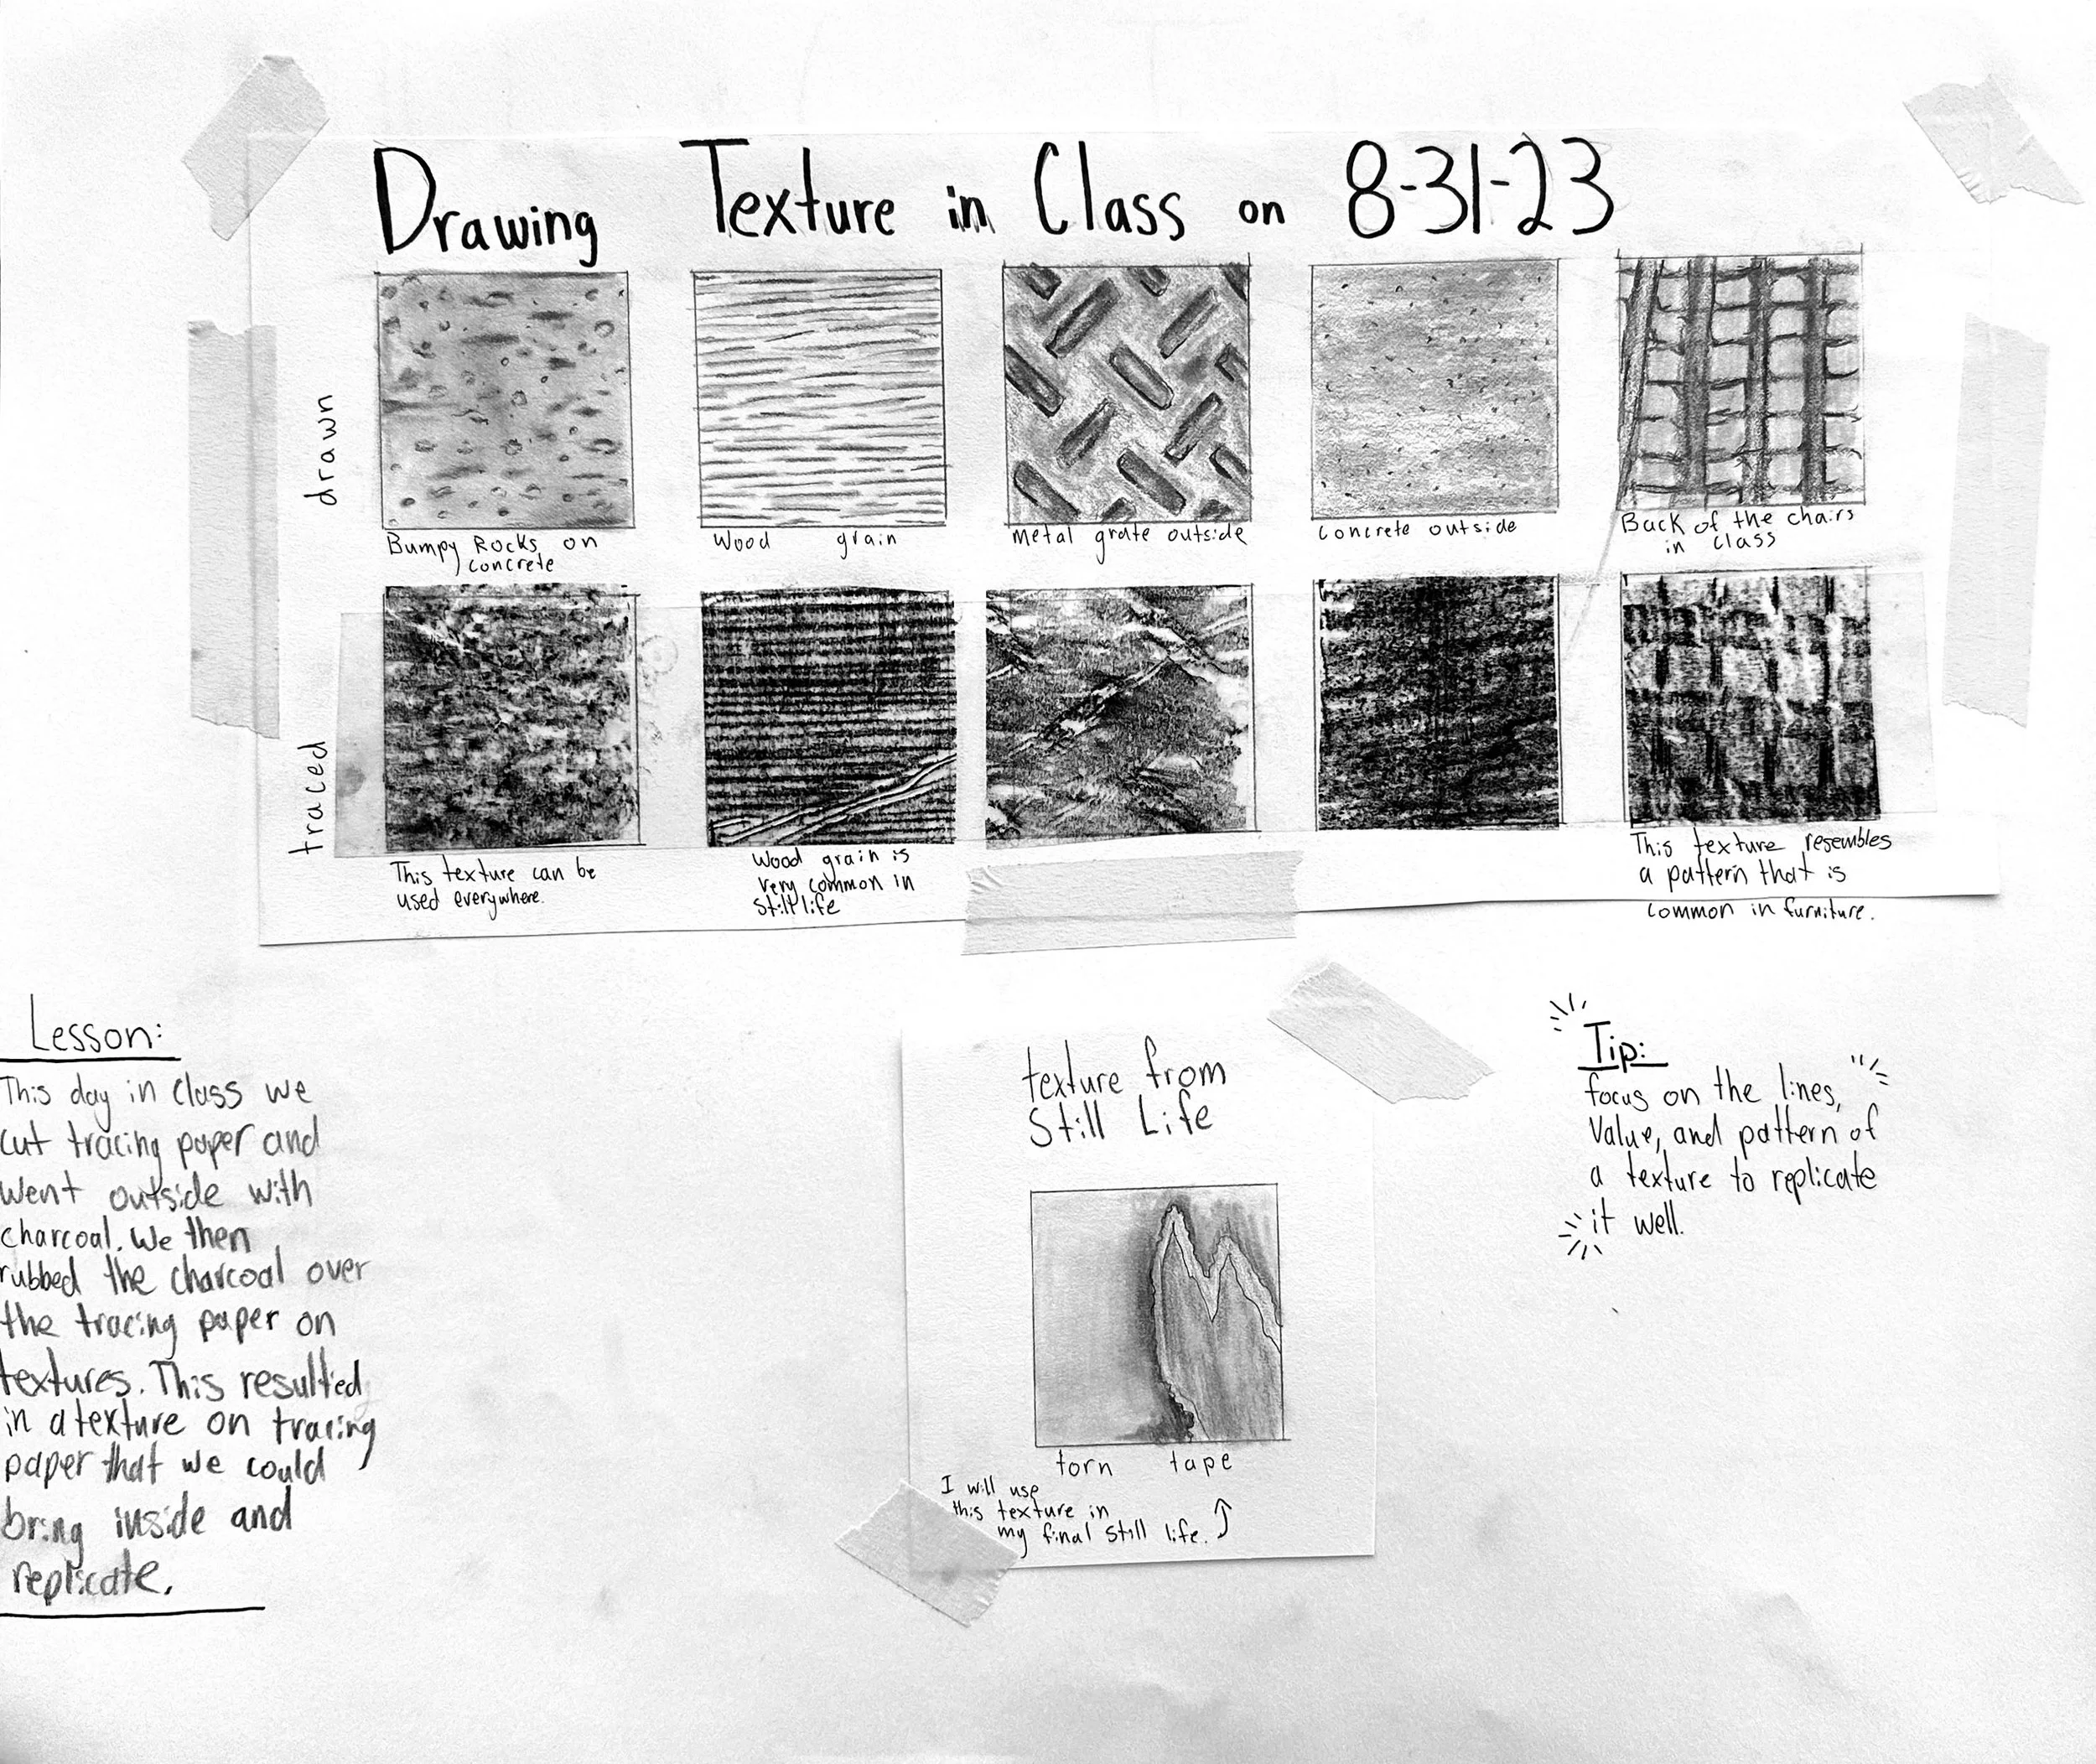 Drawing Texture in Class on 8-31-23
drawn
Bumpy Rocks on
concrete
Wood grain
Metal grate outside
Concrete outside
Back of the chairs
in class
traced
This texture can be
used everywhere.
Wood grain is
very common in
Still life
This texture resembles
a pattern that is
common in furniture.
Lesson:
This day in class we
cut tracing paper and
went outside with
charcoal. We then
rubbed the charcoal over
the tracing paper on
textures. This resulted
in a texture on tracing
paper that we could
bring inside and
replicate.
texture from
Still Life
torn tape
I will use
this texture in
my final still life.
Tip:
focus on the lines,
Value, and pattern of
a texture to replicate
it well.